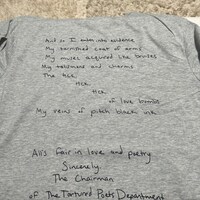 And so I enter into evidence
My tarnished coat of arms
My muses, acquired like bruises
My talismans and charms
The tick
tick
tick
of love bombs
My veins of pitch black ink
All's fair in love and poetry
Sincerely,
The Chairman
of The Tortured Poets Department